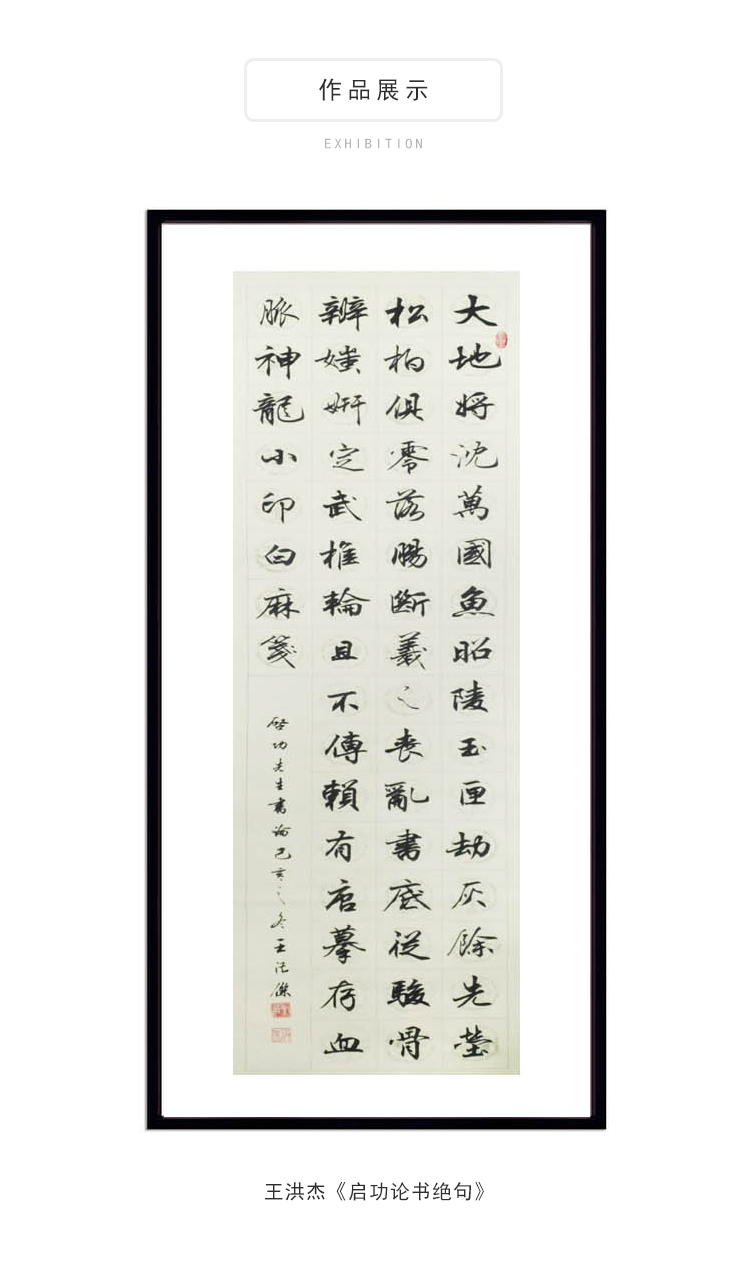 作品展示
EXHIBITION
大地将沈萬國魚昭陵玉匣劫灰餘先塋
松柏俱零落腸斷羲之喪亂書底從駿骨
辨媸妍定武椎輪且不傳賴有唐摹存血
脈神龍小印白麻箋
啓功先生書論己亥之冬王洪傑
王洪杰《启功论书绝句》